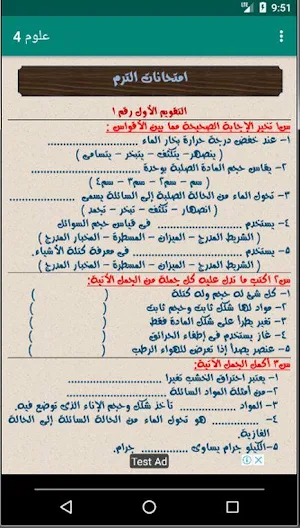 9:51
علوم 4
امتحانات الترم
التقويم الأول رقم ١
س١ تخير الإجابة الصحيحة مما بين الأقواس :
١- عند خفض درجة حرارة بخار الماء ........................
( ينصهر – يتكثف – يتبخر – يتسامى )
٢- يقاس حجم المادة الصلبة بوحدة ........................
( سم – سم٢ – سم٣ – سم٤ )
٣- تحول الماء من الحالة الصلبة إلى السائلة يسمى ........................
( انصهار – تكثف – تبخر – تجمد )
٤- يستخدم ........................ فى قياس حجم السوائل
( الشريط المدرج – الميزان – المسطرة – المخبار المدرج )
٥- يستخدم ........................ فى معرفة كتلة الأشياء.
( الشريط المدرج – الميزان – المسطرة – المخبار المدرج )
س٢ اكتب ما تدل عليه كل جملة من الجمل الآتية:
١- كل شئ له حجم وله كتلة ( )
٢- مواد لها شكل ثابت وحجم ثابت ( )
٣- تغير يطرأ على شكل المادة فقط ( )
٤- غاز يستخدم فى إطفاء الحرائق ( )
٥- عنصر يصدأ إذا تعرض للهواء الرطب ( )
س٣ أكمل الجمل الآتية:
١- يعتبر احتراق الخشب تغيرا ........................
٢- من أمثلة المواد السائلة ........................
٣- المواد ........................ تأخذ شكل وحجم الإناء الذى توضع فيه.
٤- ........................ هو تحول الماء من الحالة السائلة إلى الحالة
الغازية.
٥- الكيلو جرام يساوى ............ جرام.
Test Ad